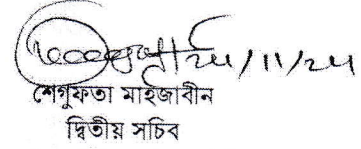 ২৫/১১/২৫
শেগুফতা মাহজাবীন
দ্বিতীয় সচিব